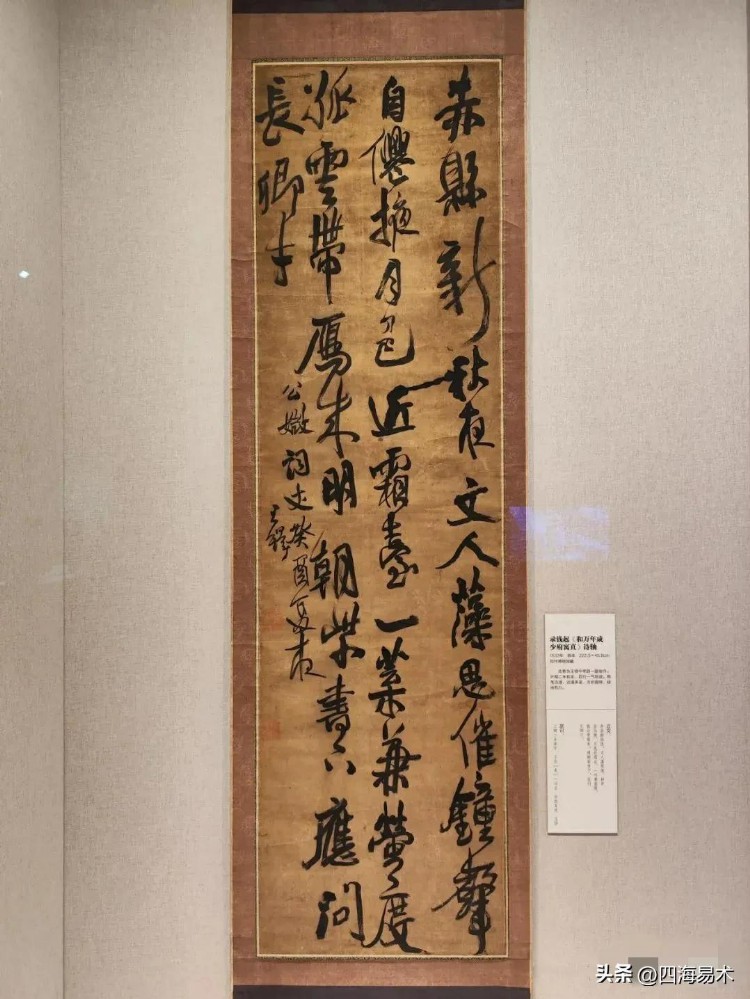 赤縣新秋夜文人藻思催鐘聲
自僊掖月色近霜臺一葉兼螢度
孤雲帶鴈來明朝紫書下應問
長卿才
公詞丈癸酉夏夜
王鐸
录钱起《和万年成
少府寓直》诗轴
头条 @四海易木